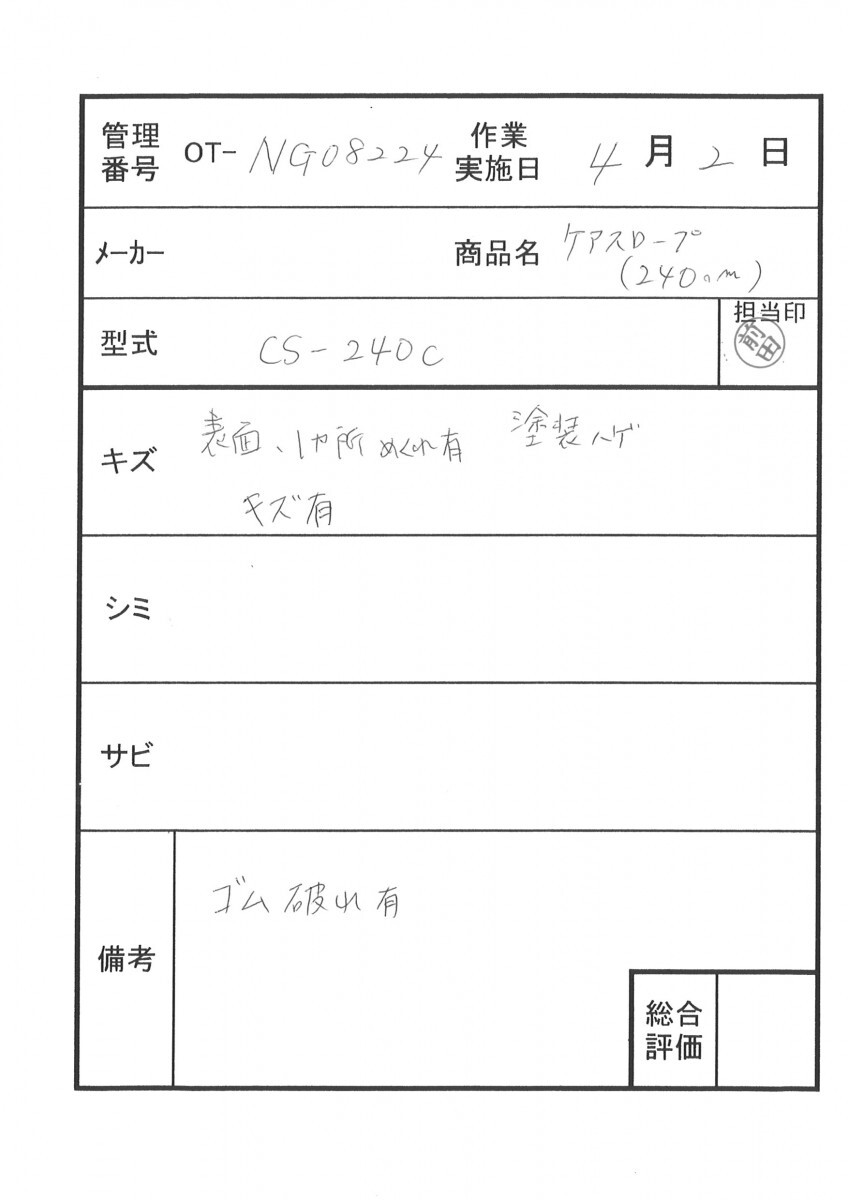 管理番号 OT- NG08224 作業実施日 4月2日
メーカー 商品名 ケアスロープ
(240cm)
型式 CS-240C 担当印 前田
キズ 表面、1ヶ所めくれ有 塗装ハゲ
キズ有
シミ
サビ
備考 ゴム破れ有
総合評価